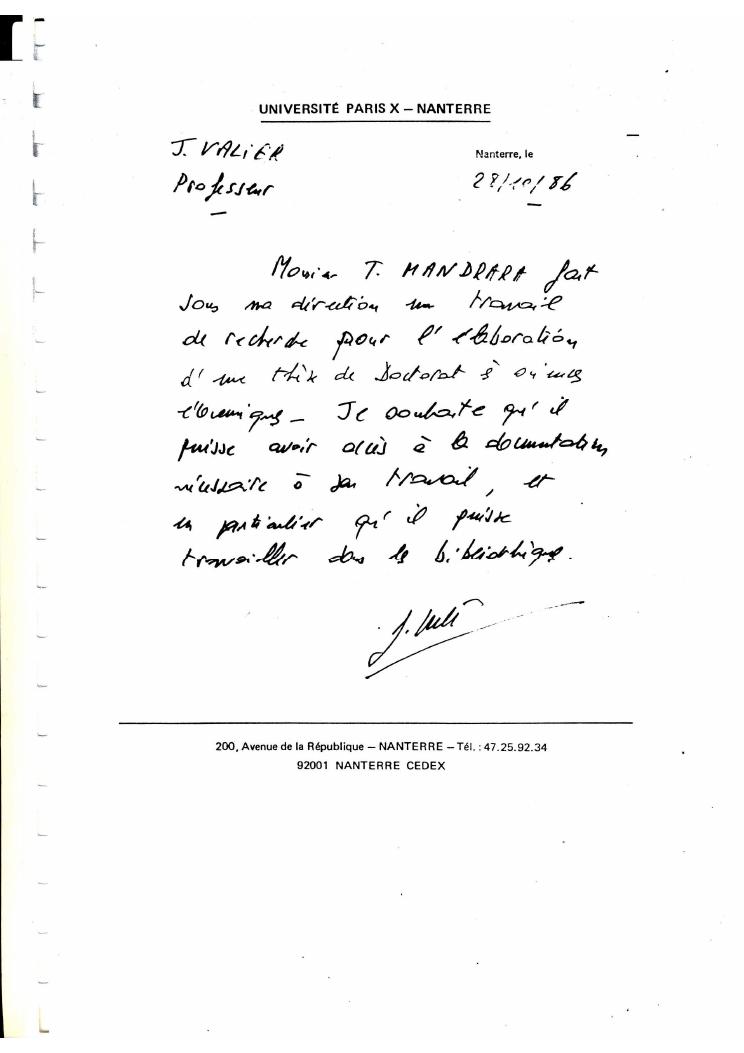 UNIVERSITÉ PARIS X – NANTERRE
J. VALIER
Nanterre, le
Professeur
28/10/86
Monsieur T. MANDRARA fait
sous ma direction un travail
de recherche pour l'élaboration
d'une thèse de Doctorat ès sciences
économiques – Je souhaite qu'il
puisse avoir accès à la documentation
nécessaire à son travail, et
en particulier qu'il puisse
travailler dans les bibliothèques.
200, Avenue de la République – NANTERRE – Tél. : 47.25.92.34
92001 NANTERRE CEDEX